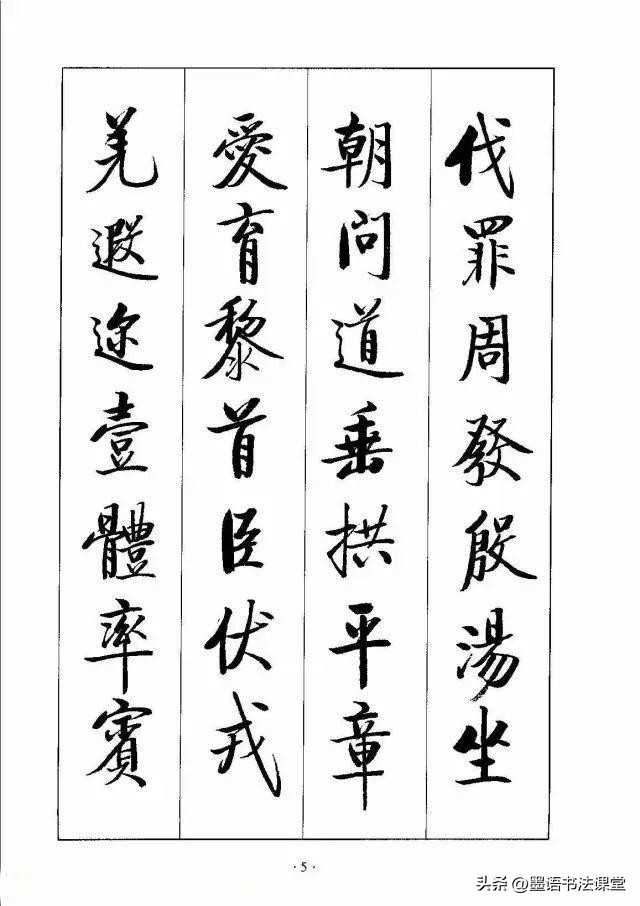 伐罪周發殷湯坐
朝問道垂拱平章
愛育黎首臣伏戎
羌遐迩壹體率賓
·5·
头条@墨语书法课堂